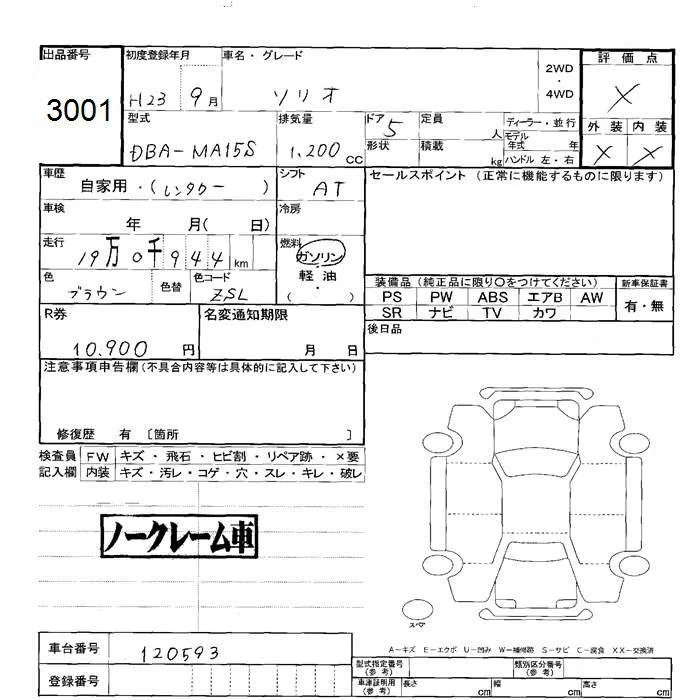 出品番号 3001
初度登録年月 H23 9月
車名・グレード ソリオ
2WD ・ 4WD
評価点 X
外装 X 内装 X
型式 DBA-MA15S
排気量 1,200 cc
ドア 5 定員 人
形状 積載 kg
ディーラー・並行
モデル年式 年
ハンドル 左・右
車歴 自家用・(レンタカー)
シフト AT
セールスポイント (正常に機能するものに限ります)
車検 年 月( 日)
冷房
走行 19万0千944km
燃料 ガソリン・軽油・( )
色 ブラウン 色替 色コード ZSL
装備品 (純正品に限り○をつけてください)
PS PW ABS エアB AW
SR ナビ TV カワ
新車保証書 有・無
後日品
R券 10,900 円
名変通知期限 月 日
注意事項申告欄 (不具合内容等は具体的に記入して下さい)
修復歴 有 〔箇所 〕
検査員記入欄
FW キズ・飛石・ヒビ割・リペア跡・×要
内装 キズ・汚レ・コゲ・穴・スレ・キレ・破レ
ノークレーム車
スペア
A-キズ E-エクボ U-凹み W-補修跡 S-サビ C-腐食 XX-交換済
車台番号 120593
登録番号
型式指定番号(参考) 類別区分番号(参考)
車庫証明用(参考) 長さ cm 幅 cm 高さ cm